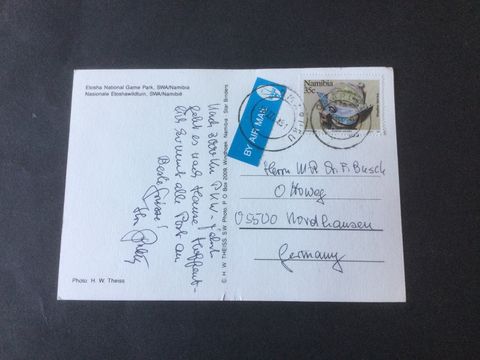 Etosha National Game Park, SWA/Namibia
Nasionale Etoshawildtuin, SWA/Namibië
Nach 3000 Km PKW-Fahrt
geht es nach Hause. Hoffent-
lich kommt alle Post an
Beste Grüsse!
Ihr
Photo: H. W. Theiss
© H. W. THEISS, S.W. Photo, P O Box 2009, Windhoek, Namibia Star Binders
BY AIR MAIL
Namibia
35c
Herrn MR Dr. F. Busch
Ottoweg
05500 Nordhausen
Germany